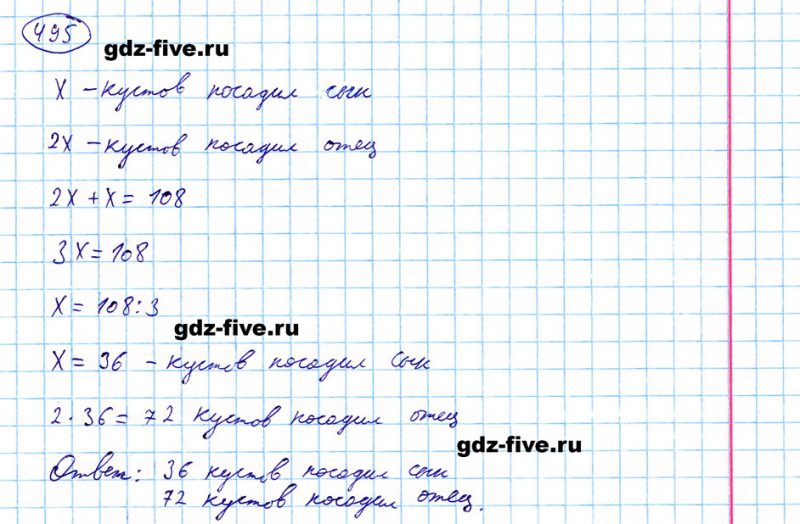 495
gdz-five.ru
x – кустов посадил сын
2x – кустов посадил отец
2x + x = 108
3x = 108
x = 108 : 3
gdz-five.ru
x = 36 – кустов посадил сын
2 · 36 = 72 кустов посадил отец
gdz-five.ru
Ответ: 36 кустов посадил сын
72 кустов посадил отец.